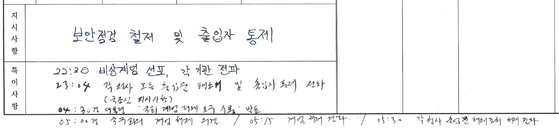 지시사항
보안점검 철저 및 출입자 통제
특이사항
22:20 비상계엄 선포, 각 기관 전파
23:04 각 청사 모든 출입문 폐쇄 및 출입자 통제 전파
(국조실 지시사항)
04:30경 대통령 국회 계엄 해제 요구 수용, 발표
05:00경 국무회의 계엄 해제 의결 / 05:15 계엄 해제 전파 / 05:30 각 청사